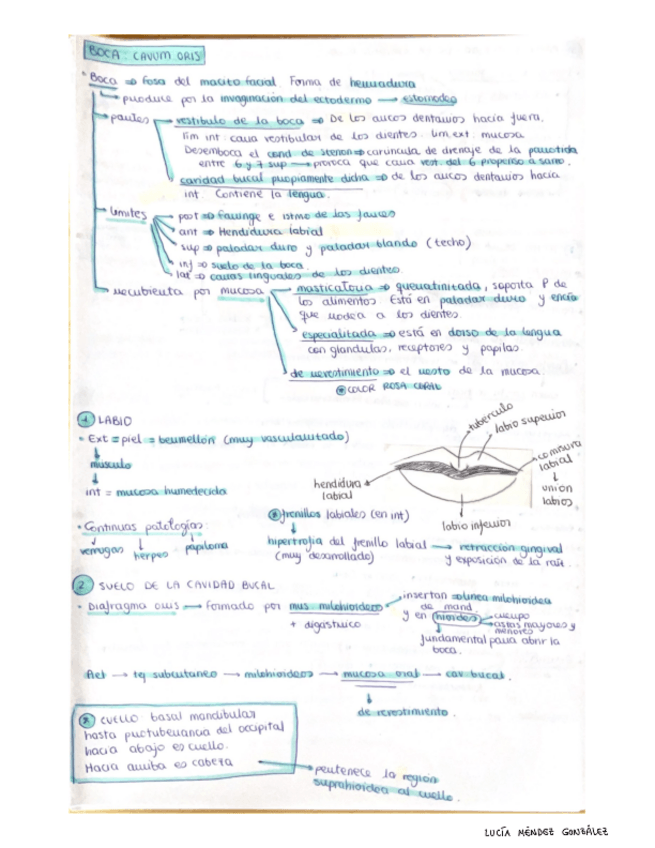 BOCA: CAVUM ORIS
Boca ⇒ fosa del macizo facial. Forma de hendidura
produce por la invaginación del ectodermo → estomodeo
partes → vestíbulo de la boca ⇒ De los arcos dentarios hacia fuera.
lim int. cara vestibular de los dientes. lim ext. mucosa
Desemboca el cond de stenon ⇒ carúncula de drenaje de la parótida
entre 6 y 7 sup → provoca que cara vest. del 6 propenso a sarro.
cavidad bucal propiamente dicha ⇒ de los arcos dentarios hacia
int. Contiene la lengua.
límites → post ⇒ faringe e istmo de las fauces
ant ⇒ Hendidura labial
sup ⇒ paladar duro y paladar blando (techo)
inf ⇒ suelo de la boca.
lat ⇒ caras linguales de los dientes.
recubierta por mucosa → masticatoria ⇒ queratinizada, soporta P de
los alimentos. Está en paladar duro y encía
que rodea a los dientes.
especializada ⇒ está en dorso de la lengua
con glándulas, receptores y papilas.
de revestimiento ⇒ el resto de la mucosa.
* COLOR ROSA CORAL
1 LABIO
Ext = piel = bermellón (muy vascularizado)
↓
músculo
↓
int = mucosa humedecida
tubérculo
labio superior
comisura
labial
↓
unión
labios.
hendidura
labial
labio inferior
* frenillos labiales (en int)
↓
hipertrofia del frenillo labial → retracción gingival
(muy desarrollado) y exposición de la raíz.
Continuas patologías:
verrugas herpes papiloma
2 SUELO DE LA CAVIDAD BUCAL
Diafragma oris → formado por mus milohioideo
+ digástrico
insertan ⇒ línea milohioidea
de mand.
y en hioides → cuerpo
astas mayores y
menores
fundamental para abrir la
boca.
Piel → tej subcutáneo → milohioideos → mucosa oral → cav bucal.
↓
de revestimiento.
* CUELLO basal mandibular
hasta protuberancia del occipital
hacia abajo es cuello.
Hacia arriba es cabeza
pertenece la región
suprahioidea al cuello.
LUCÍA MÉNDEZ GONZÁLEZ